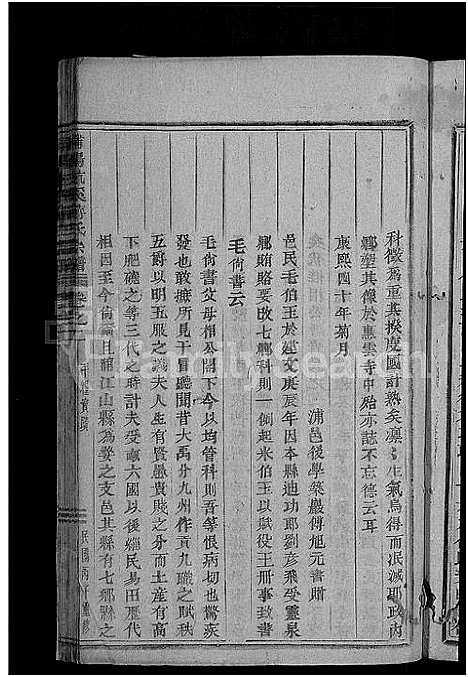 科徵為重其揆度國計熟矣凜凜生氣烏得而泯滅耶故內
鄉塑其像於惠雲寺中殆亦誌不忘德云耳
康熙四十年菊月
浦邑後學築巖傅旭元書贈
邑民毛伯玉於建文庚辰年因本縣迪功耶劉彥飛受靈泉
鄉賄賂要改七鄉科則一例起米伯玉以賦役王冊事致書
毛尙書云
毛尙書父母相公閣下今以均管科則吾等恨病切也驚疾
發也敢攄所見于冒聽聞昔大禹分九州作貢九職之賦秩
五爵以明五服之議夫人生有賢愚貴賤之分而土產有高
下肥磽之等三代之時計夫受廩六國以後經民易田歷代
相因至今尙爾且浦江山縣為婺之支邑其縣有七鄉縣之
浦陽 氏宗譜 卷之一
民國丙 重修